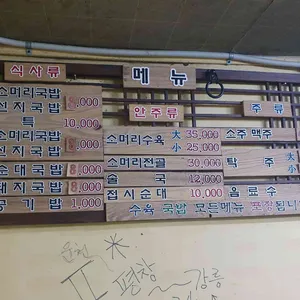 메뉴
식사류
소머리국밥 ,000
선지국밥 ,000
특 10,000
소머리국밥
선지국밥 ,000
순대국밥 ,000
돼지국밥 ,000
공기밥 1,000
안주류
소머리수육 大 35,000
小 25,000
소머리전골 30,000
술국 12,000
접시순대 10,000
주류
소주 맥주
탁주 大
小
음료수
수육 국밥 모든메뉴 포장됩니
평창~강릉